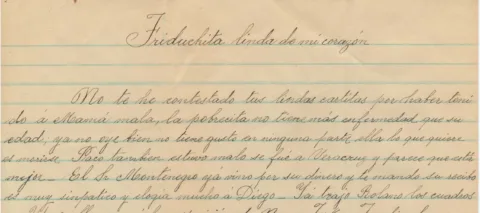 Friduchita linda de mi corazón
No te he contestado tus lindas cartitas por haber teni
do á Mamá mala, la pobrecita no tiene mas enfermedad que su
edad, ya no oye bien no tiene gusto en ninguna parte, ella lo que quiere
es morirse. Paco tambien estuvo malo se fué a Veracruz y parece que está
mejor. El Sr Montenegro ya vino por su dinero y te mando su recibo
es muy simpatico y elogia mucho á Diego. Ya trajo Solano los cuadros